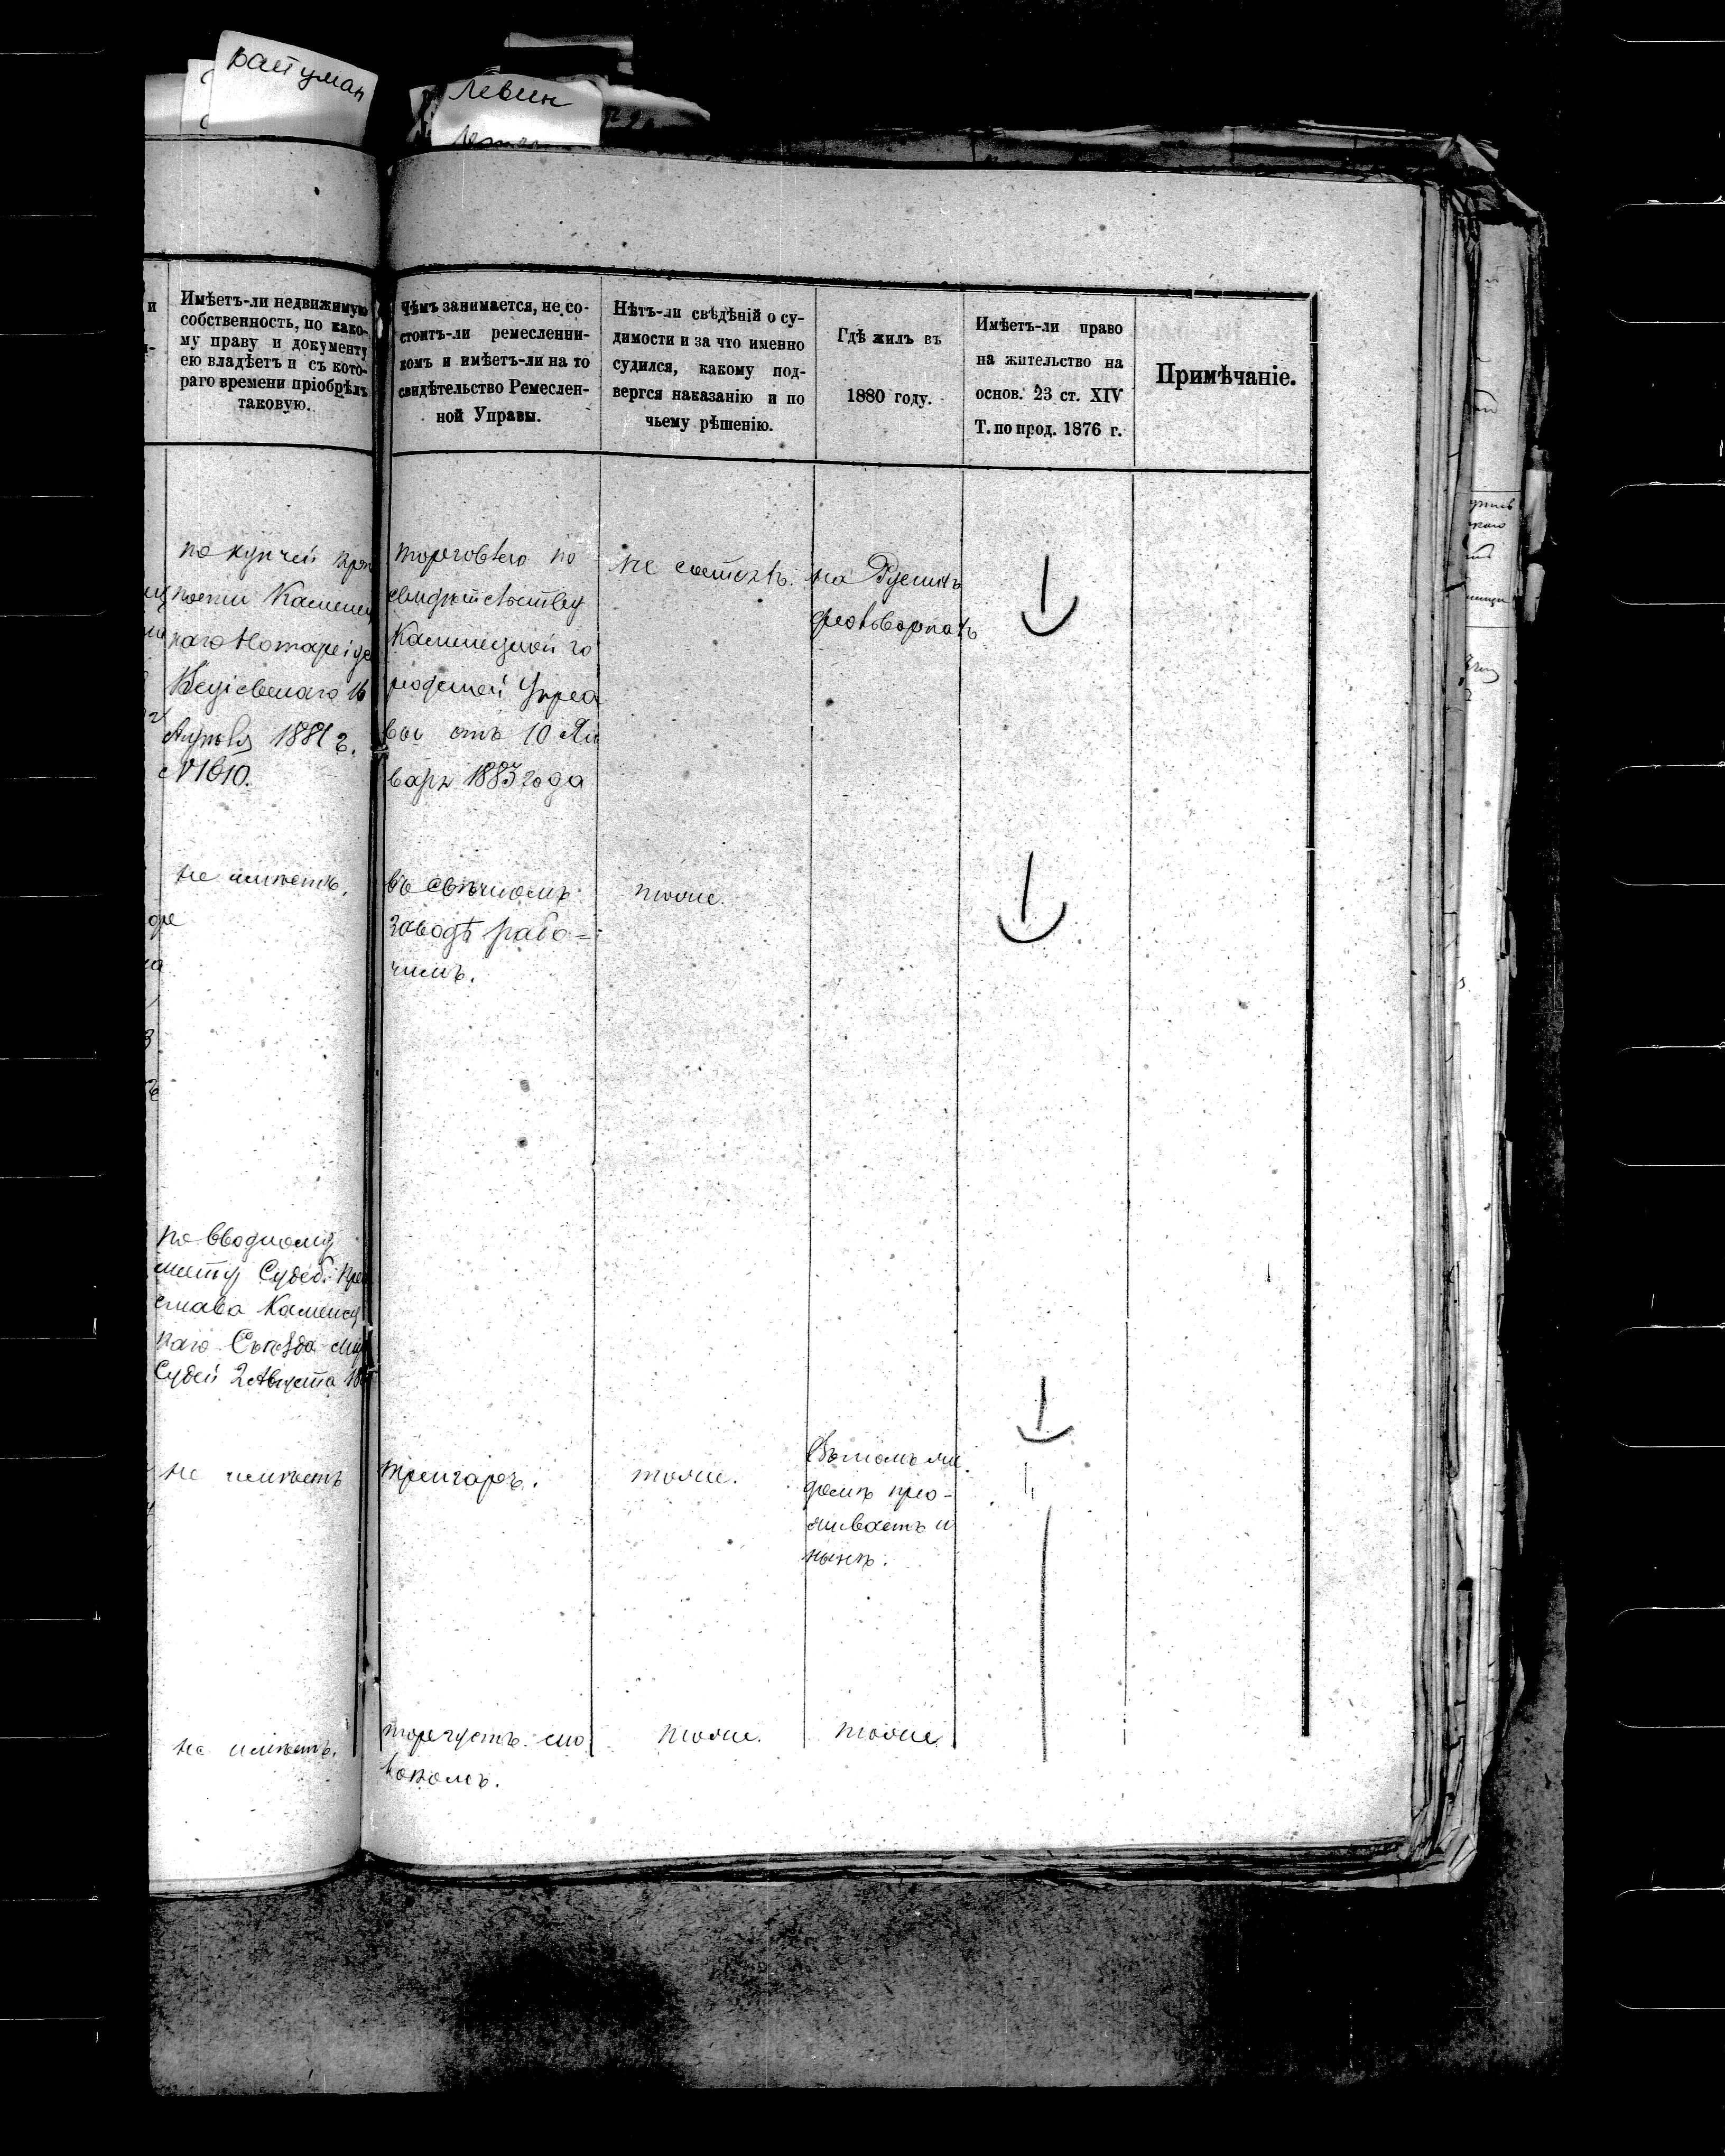 Вайгуман
Левин
Имѣетъ-ли недвижимую
собственность, по како-
му праву и документу
ею владѣетъ и съ кото-
раго времени пріобрѣлъ
таковую.
Чѣмъ занимается, не со-
стоитъ-ли ремесленни-
комъ и имѣетъ-ли на то
свидѣтельство Ремеслен-
ной Управы.
Нѣтъ-ли свѣдѣній о су-
димости и за что именно
судился, какому под-
вергся наказанію и по
чьему рѣшенію.
Гдѣ жилъ въ
1880 году.
Имѣетъ-ли право
на жительство на
основ. 23 ст. XIV
Т. по прод. 1876 г.
Примѣчаніе.
по купчей крѣ
пости Каменец
каго Нотаріуса
16
Апрѣля 1881 г.
№ 1610.
торговлею по
свидѣтельству
Каменецкой го
родской Упра
вы отъ 10 Ян
варя 1883 года
не состоялъ.
на Русскихъ
фольваркахъ
не имѣетъ.
въ свѣчномъ
заводѣ рабо=
чимъ.
тоже.
по вводному
листу Судеб. При
става Каменец
каго Съѣзда Мир
Судей 2 Августа
не имѣетъ
тоже.
домѣ про-
живаетъ и
нынѣ.
не имѣетъ.
торгуетъ мо
локомъ.
тоже.
тоже